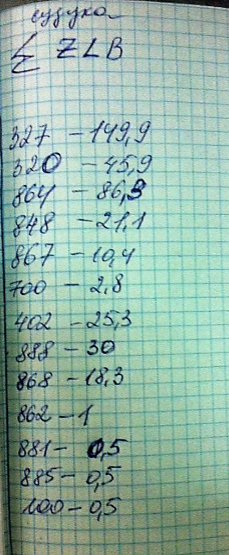 сузуха
Σ ZLB
327 - 149,9
320 - 45,9
864 - 86,3
848 - 21,1
867 - 10,4
700 - 2,8
402 - 25,3
888 - 30
868 - 18,3
862 - 1
881 - 0,5
885 - 0,5
100 - 0,5